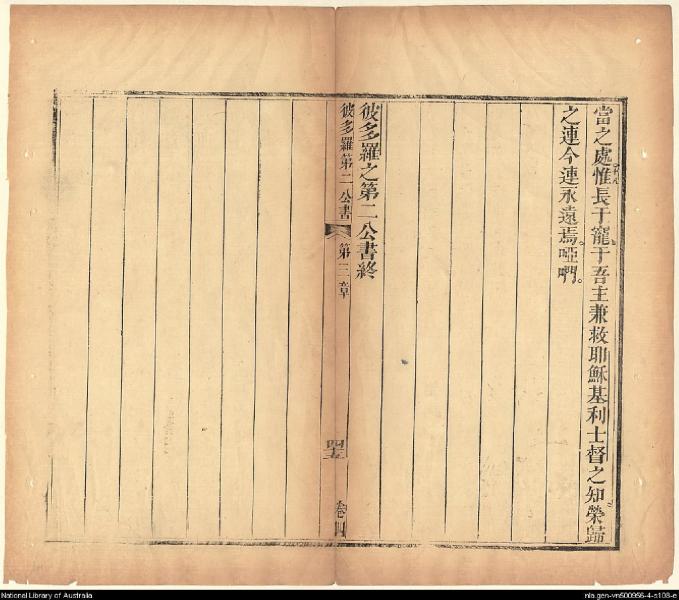 當之處惟長于寵于吾主兼救耶穌基利士督之知榮歸
之連今連永遠焉。啞們。
彼多羅之第二公書終
彼多羅第二公書 第三章 四十五
National Library of Australia
nla.gen-vn500956-4-s108-e